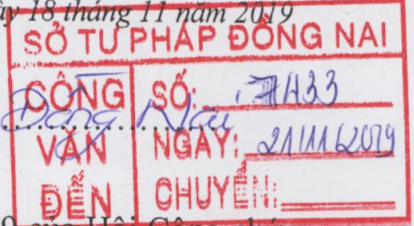 18 tháng 11 năm 2019
SỞ TƯ PHÁP ĐỒNG NAI
CÔNG VĂN ĐẾN
SỐ: 7433
NGÀY: 21/11/2019
CHUYỂN:
Đồng Nai
của Hội Công